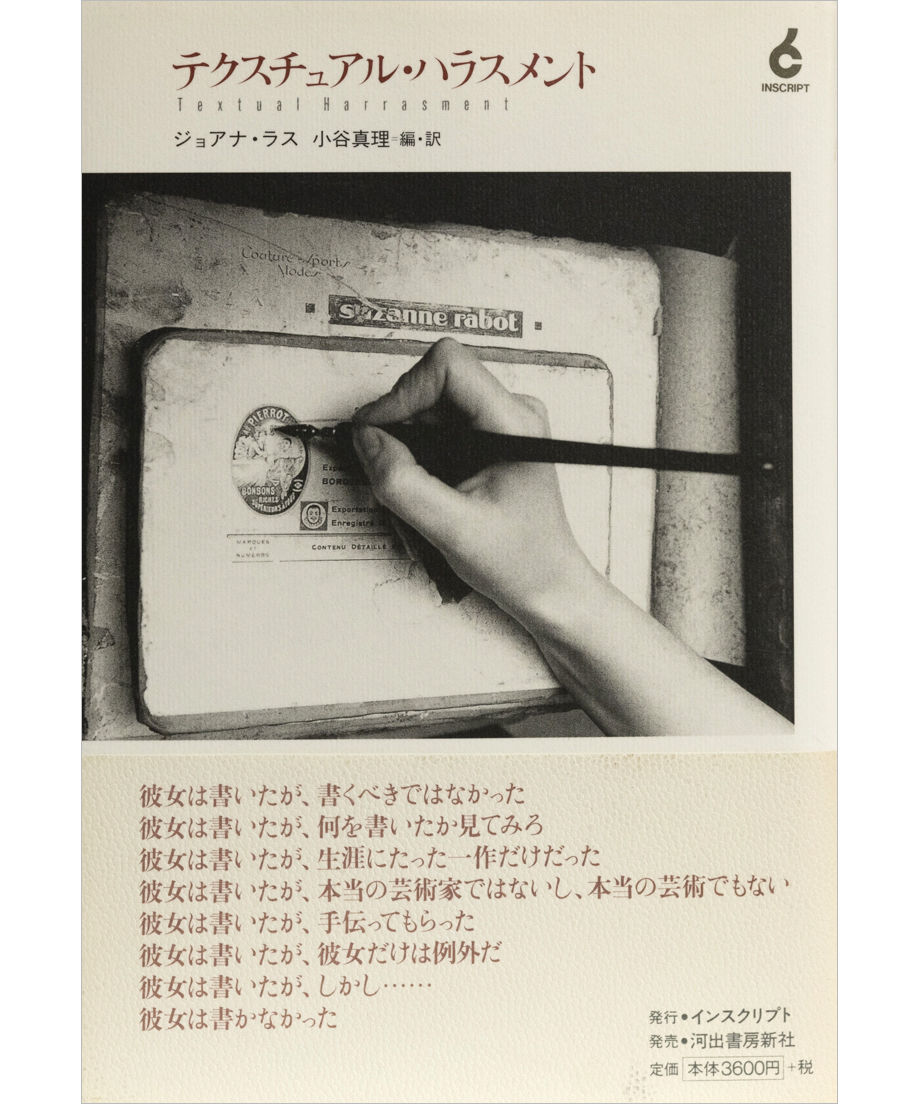 テクスチュアル・ハラスメント
Textual Harrasment
ジョアナ・ラス 小谷真理=編・訳
INSCRIPT
Couture-Sports
Modes
suzanne rabot
AU PIERROT
BONBONS
RICHES
SUPÉRIEURS & FOURRÉS
BORDE
Exportation
Enregistré
MARQUES
ET
NUMÉROS
CONTENU DÉTAILLÉ
彼女は書いたが、書くべきではなかった
彼女は書いたが、何を書いたか見てみろ
彼女は書いたが、生涯にたった一作だけだった
彼女は書いたが、本当の芸術家ではないし、本当の芸術でもない
彼女は書いたが、手伝ってもらった
彼女は書いたが、彼女だけは例外だ
彼女は書いたが、しかし……
彼女は書かなかった
発行●インスクリプト
発売●河出書房新社
定価 本体3600円+税